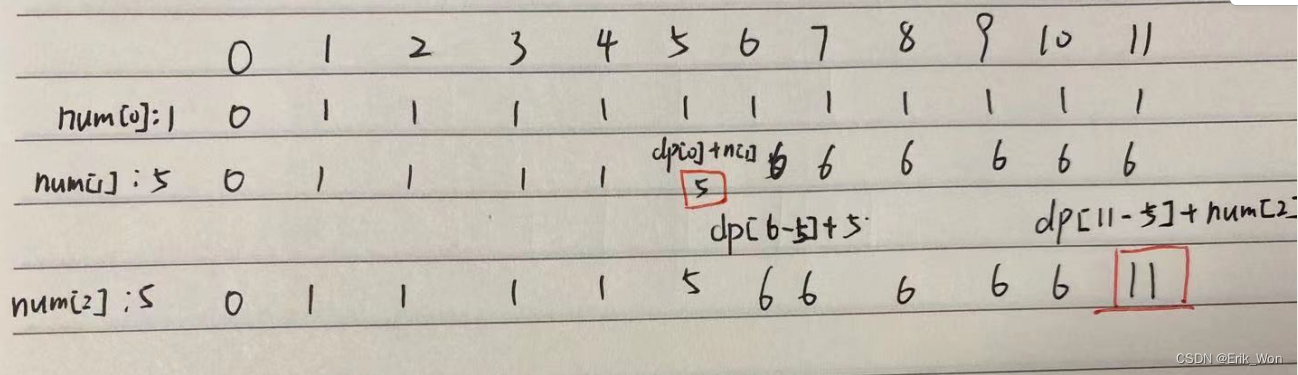 0 1 2 3 4 5 6 7 8 9 10 11
num[0]:1 0 1 1 1 1 1 1 1 1 1 1 1
dp[0]+n[1]
num[1]:5 0 1 1 1 1 5 6 6 6 6 6 6
dp[6-5]+5 dp[11-5]+num[2]
num[2]:5 0 1 1 1 1 5 6 6 6 6 6 11
CSDN @Erik_Won